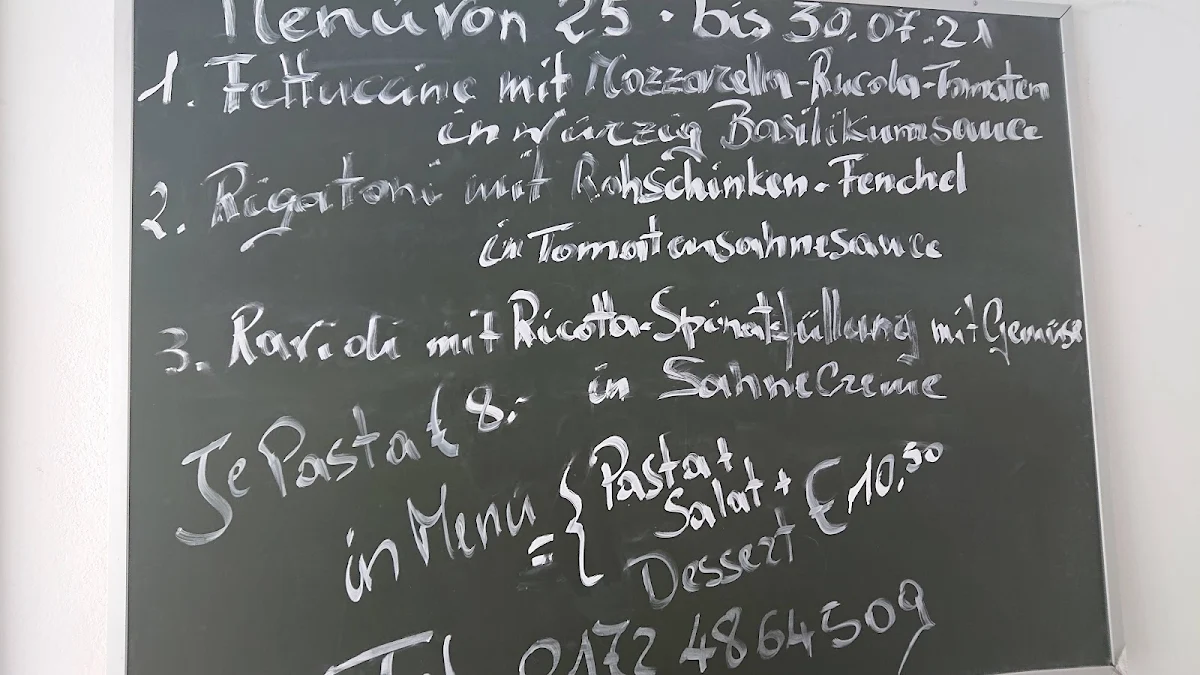 Menü von 25. bis 30.07.21
1. Fettuccine mit Mozzarella-Rucola-Tomaten
in würzig Basilikumsauce
2. Rigatoni mit Rohschinken-Fenchel
in Tomatensahnesauce
3. Ravioli mit Ricotta-Spinatfüllung mit Gemüse
in Sahnecreme
Je Pasta € 8.-
in Menü = { Pasta +
Salat + € 10.50
Dessert
Tel. 0172 4864509